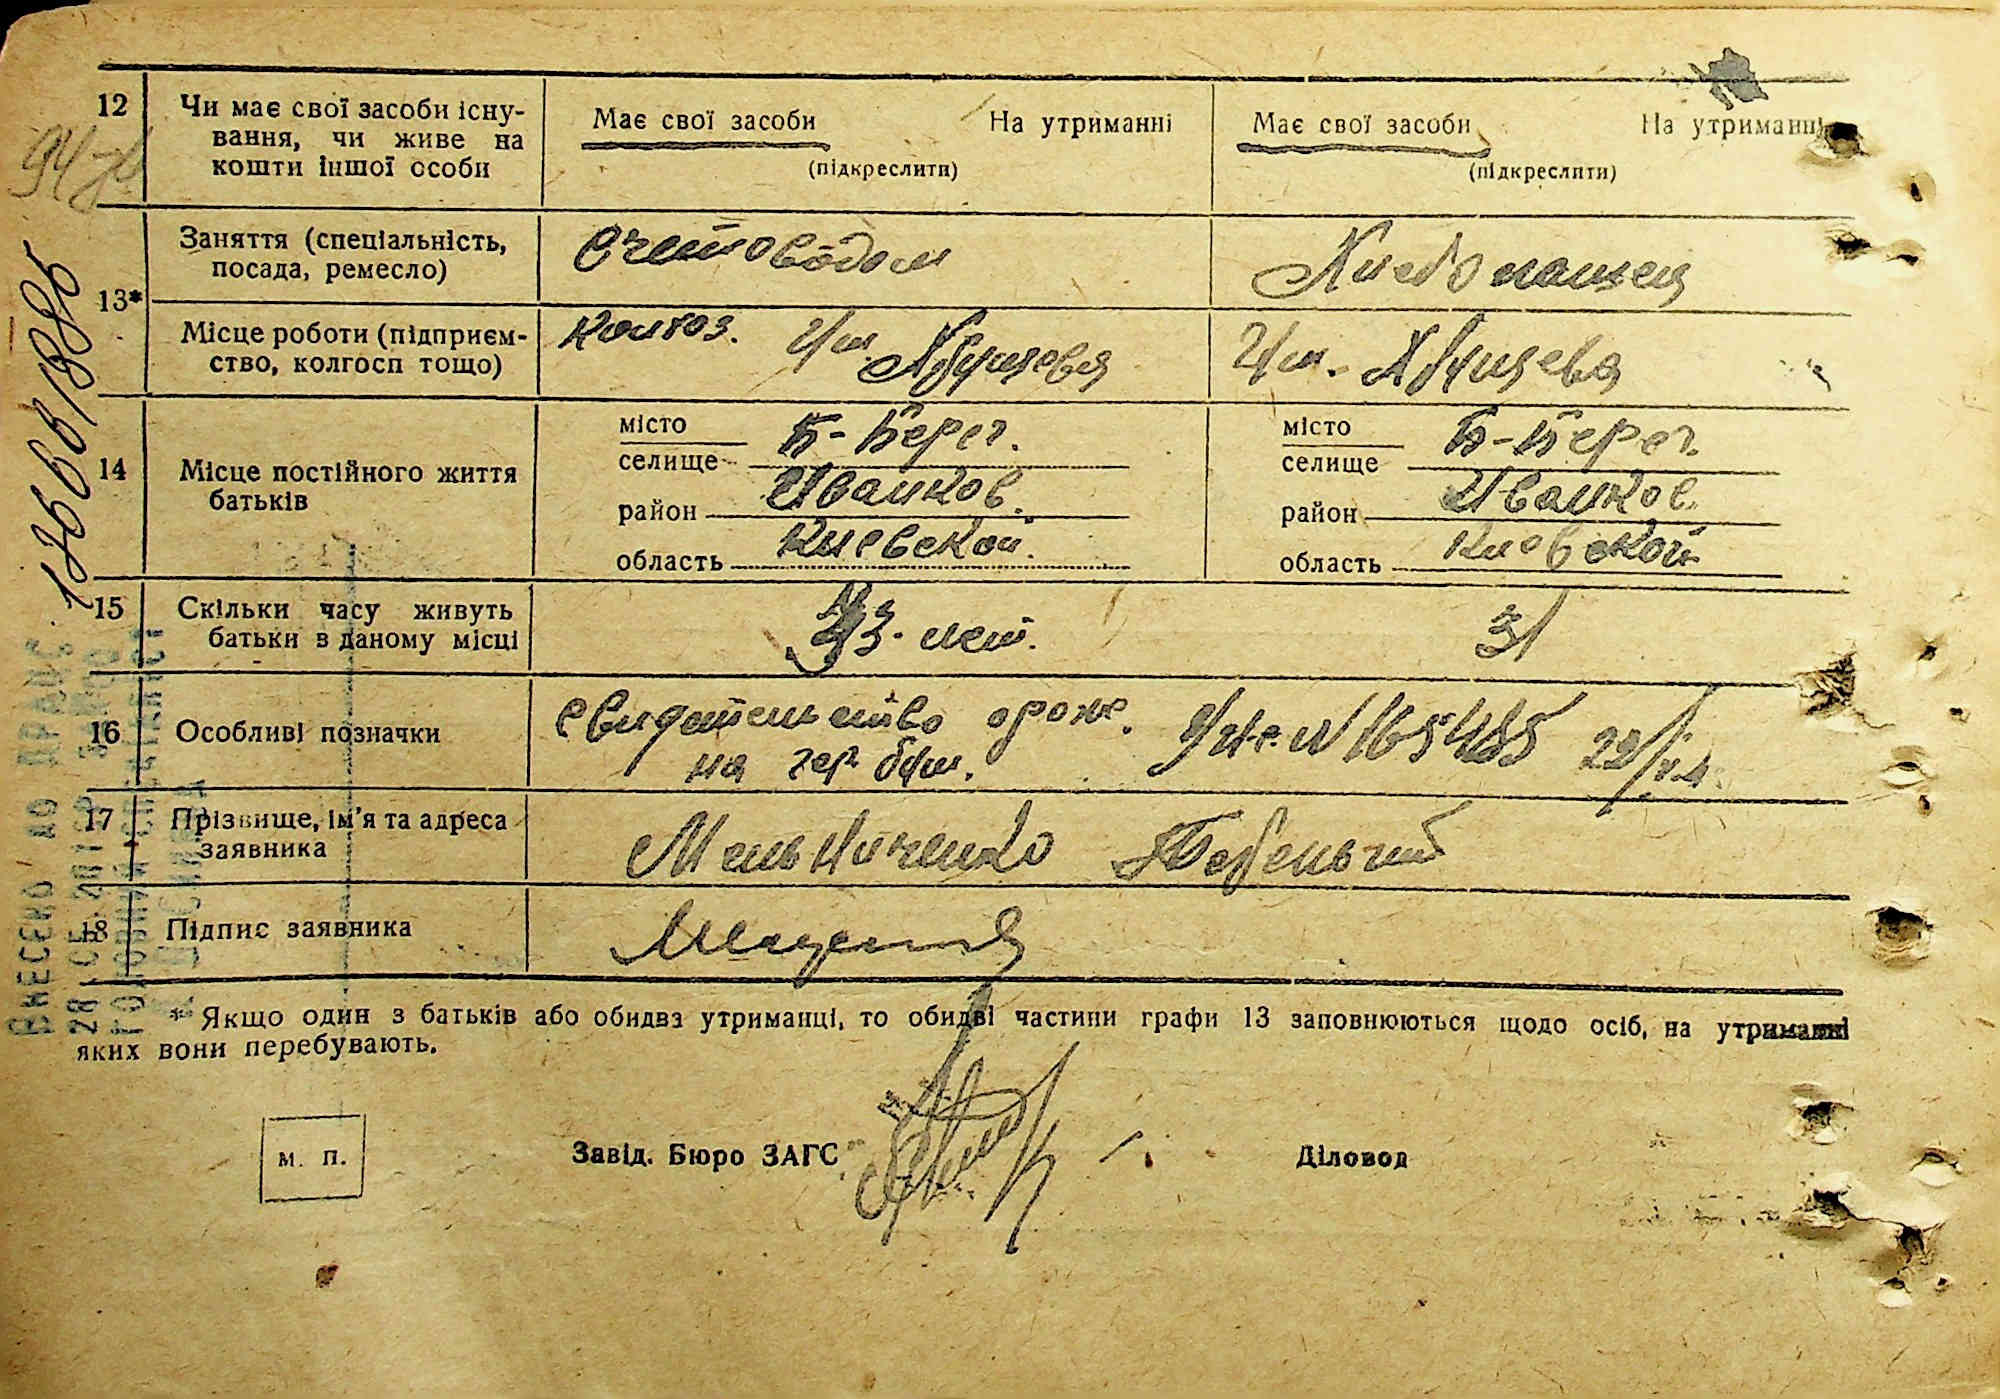 12 Чи має свої засоби існу-
вання, чи живе на
кошти іншої особи
Має свої засоби На утриманні
(підкреслити)
Має свої засоби На утриманні
(підкреслити)
13*
Заняття (спеціальність,
посада, ремесло)
Счетоводом
Хлебопашец
Місце роботи (підприєм-
ство, колгосп тощо)
Колхоз. Им. Хрущова
Им. Хрущева
14 Місце постійного життя
батьків
місто
селище Б-Берег.
район Иванков.
область Киевской.
місто
селище Б-Берег.
район Иванков.
область Киевской
15 Скільки часу живуть
батьки в даному місці
лет.
31
16 Особливі позначки
свидетельство о рожд.
на гер бум. № 165485
17 Прізвище, ім'я та адреса
заявника
Мельниченко
18 Підпис заявника
* Якщо один з батьків або обидва утриманці, то обидві частини графи 13 заповнюються щодо осіб, на утриманні
яких вони перебувають.
м. п.
Завід. Бюро ЗАГС
Діловод
ВНЕСЕНО ДО